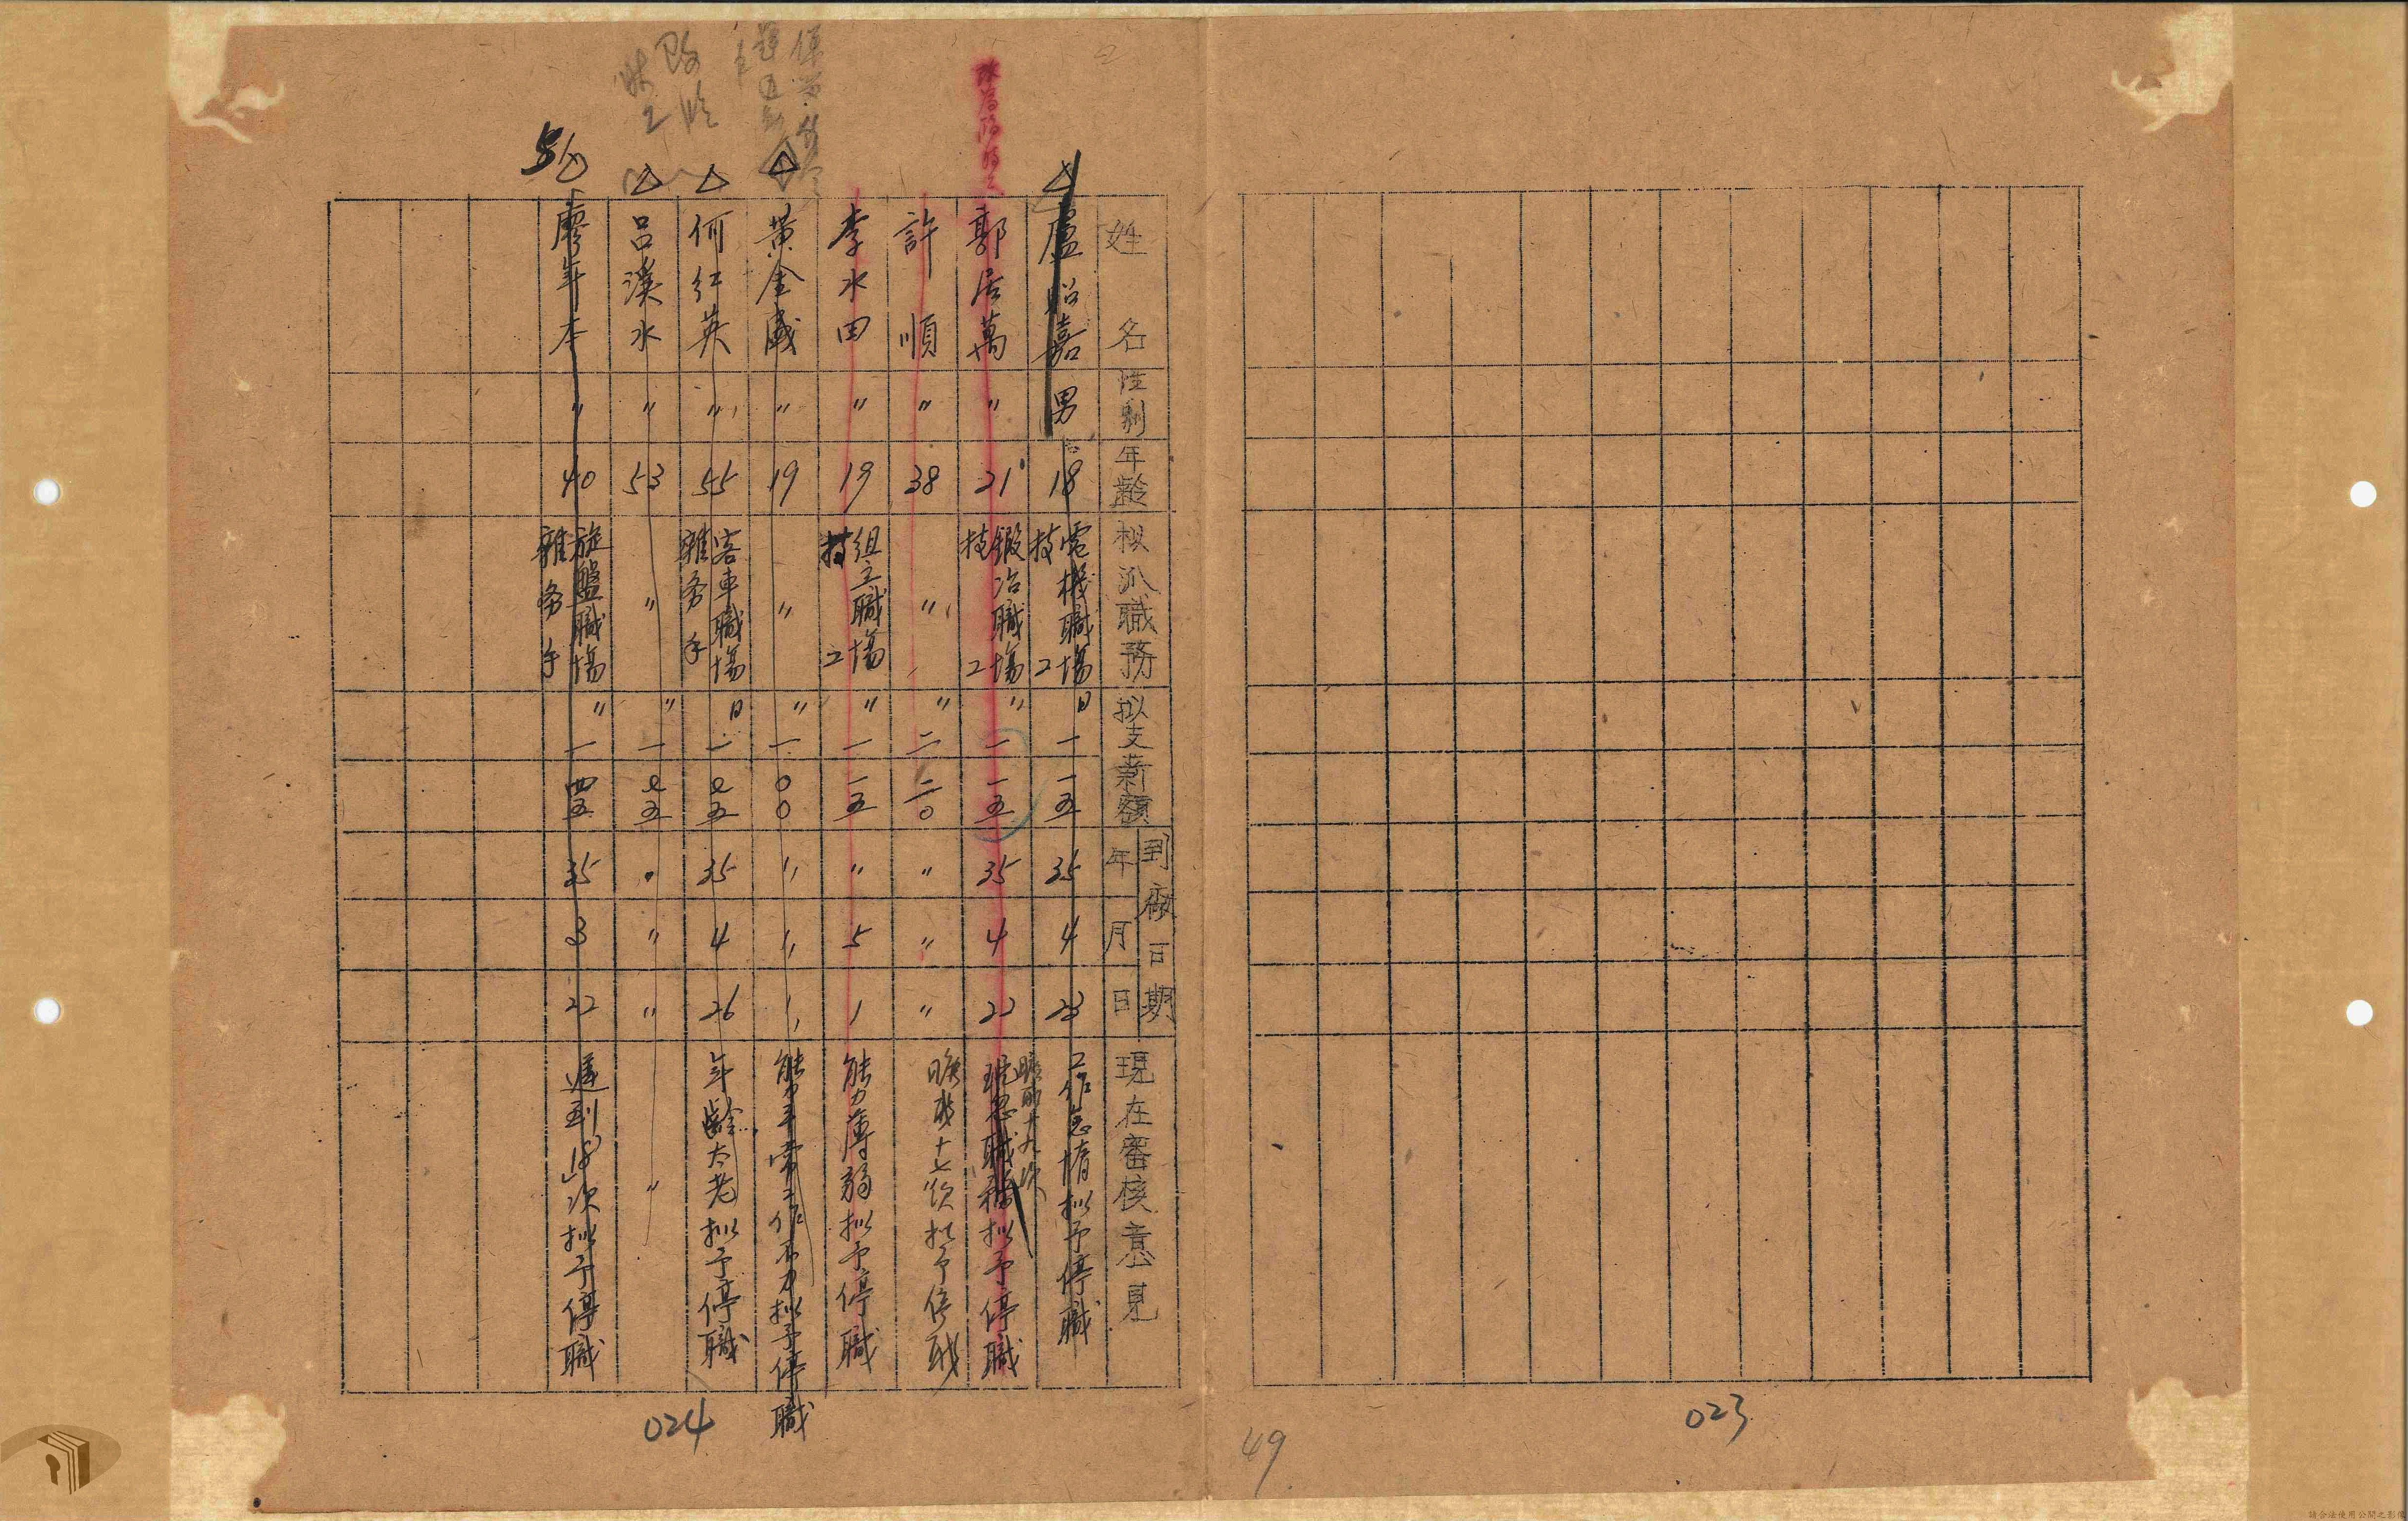 姓名
性別
年齡
擬派職務
擬支薪額
到廠日期
年
月
日
現在審核意見
盧昭嘉 男 18 電機職場技工 日 一一五 35 4 23 工作怠惰擬予停職
郭居萬 〃 21 鍛冶職場技工 〃 一一五 35 4 22 擬予停職
許順 〃 38 〃 〃 二二〇 〃 〃 〃 曠職十七次擬予停職
李水田 〃 19 組立職場技工 〃 一一五 〃 5 1 能力薄弱擬予停職
黃金盛 〃 19 〃 〃 一〇〇 〃 〃 〃 能力平常工作不力擬予停職
何紅英 〃 55 客車職場雜務手 日 一七五 35 4 26 年齡太老擬予停職
呂溪水 〃 53 〃 〃 一七五 〃 〃 〃 〃
廖年本 〃 40 旋盤職場雜務手 〃 一四五 35 3 22 遲到18次擬予停職
024
023
49